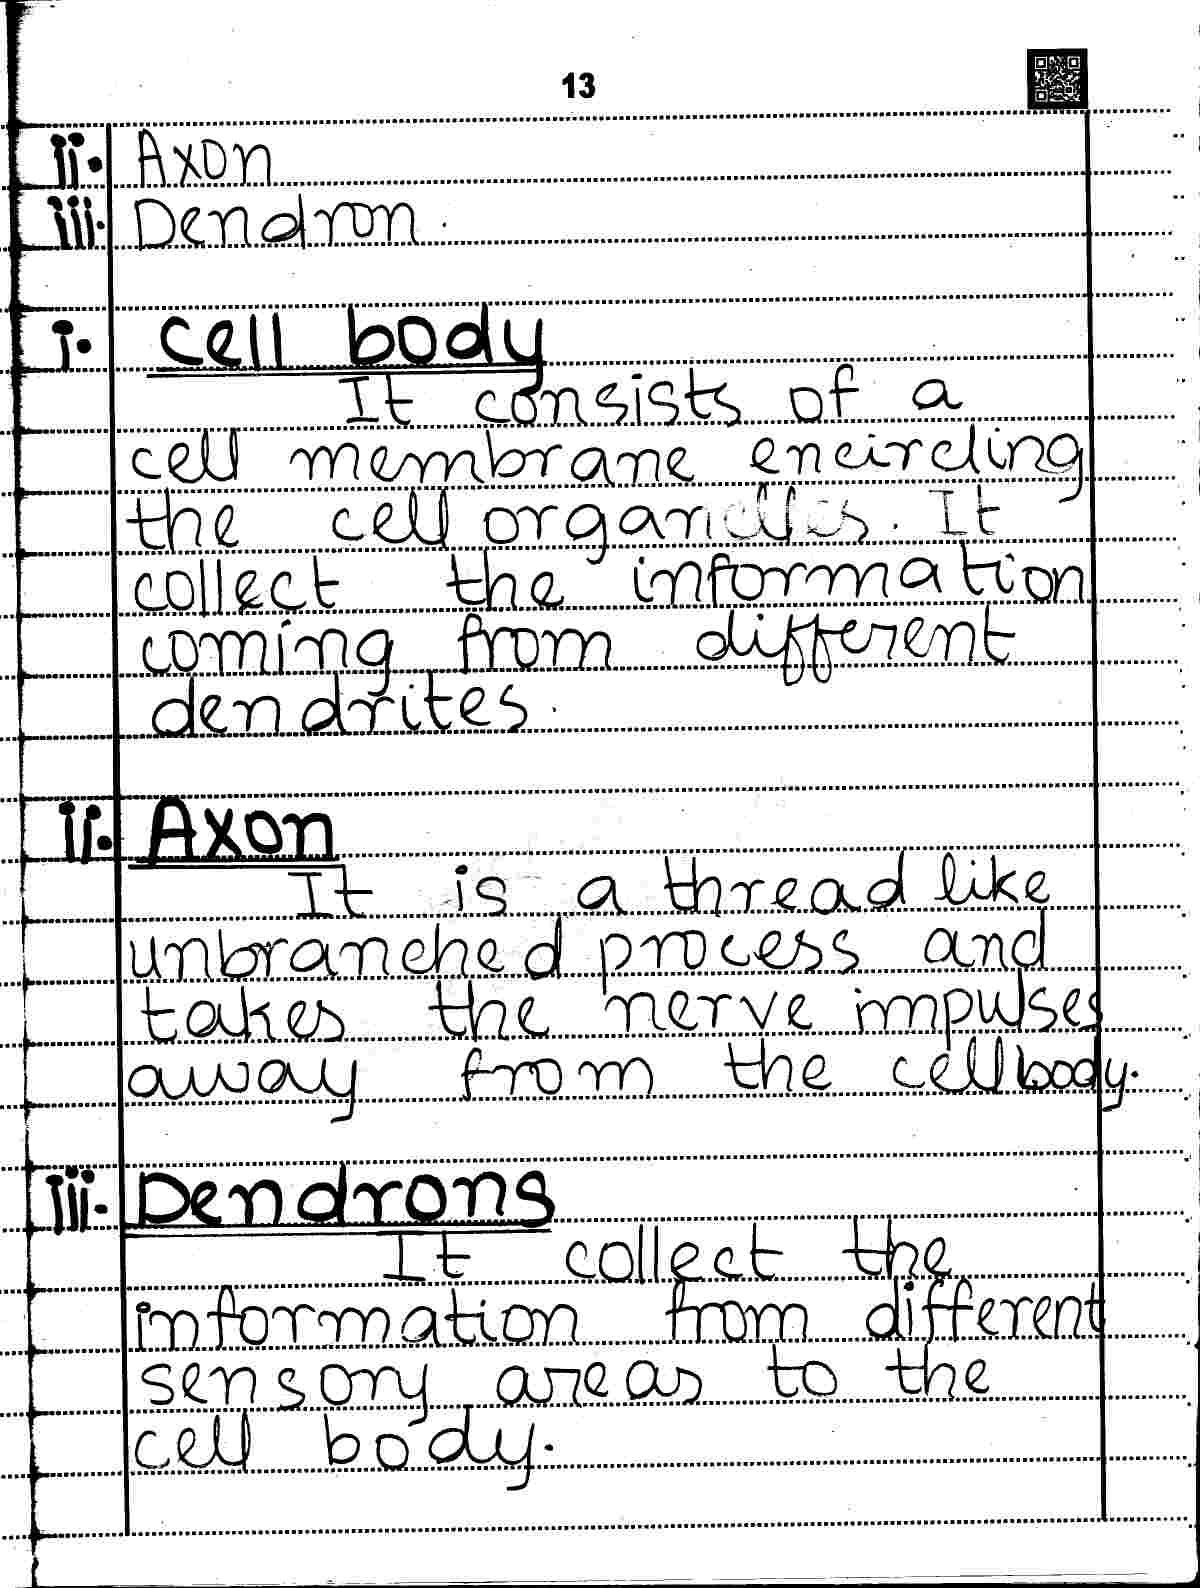 13
ii. Axon
iii. Dendron.
i. cell body
It consists of a
cell membrane encircling
the cell organelles. It
collect the information
coming from different
dendrites.
ii. Axon
It is a thread like
unbranched process and
takes the nerve impulses
away from the cell body.
iii. Dendrons
It collect the
information from different
sensory areas to the
cell body.